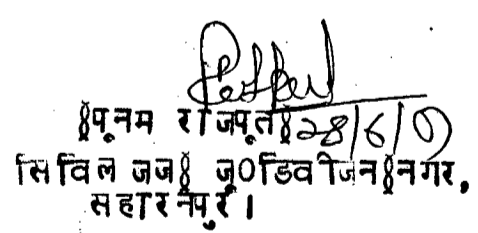 §पूनम राजपूत§ 28/6/07
सिविल जज§ जू0डिवीजन§नगर,
सहारनपुर।